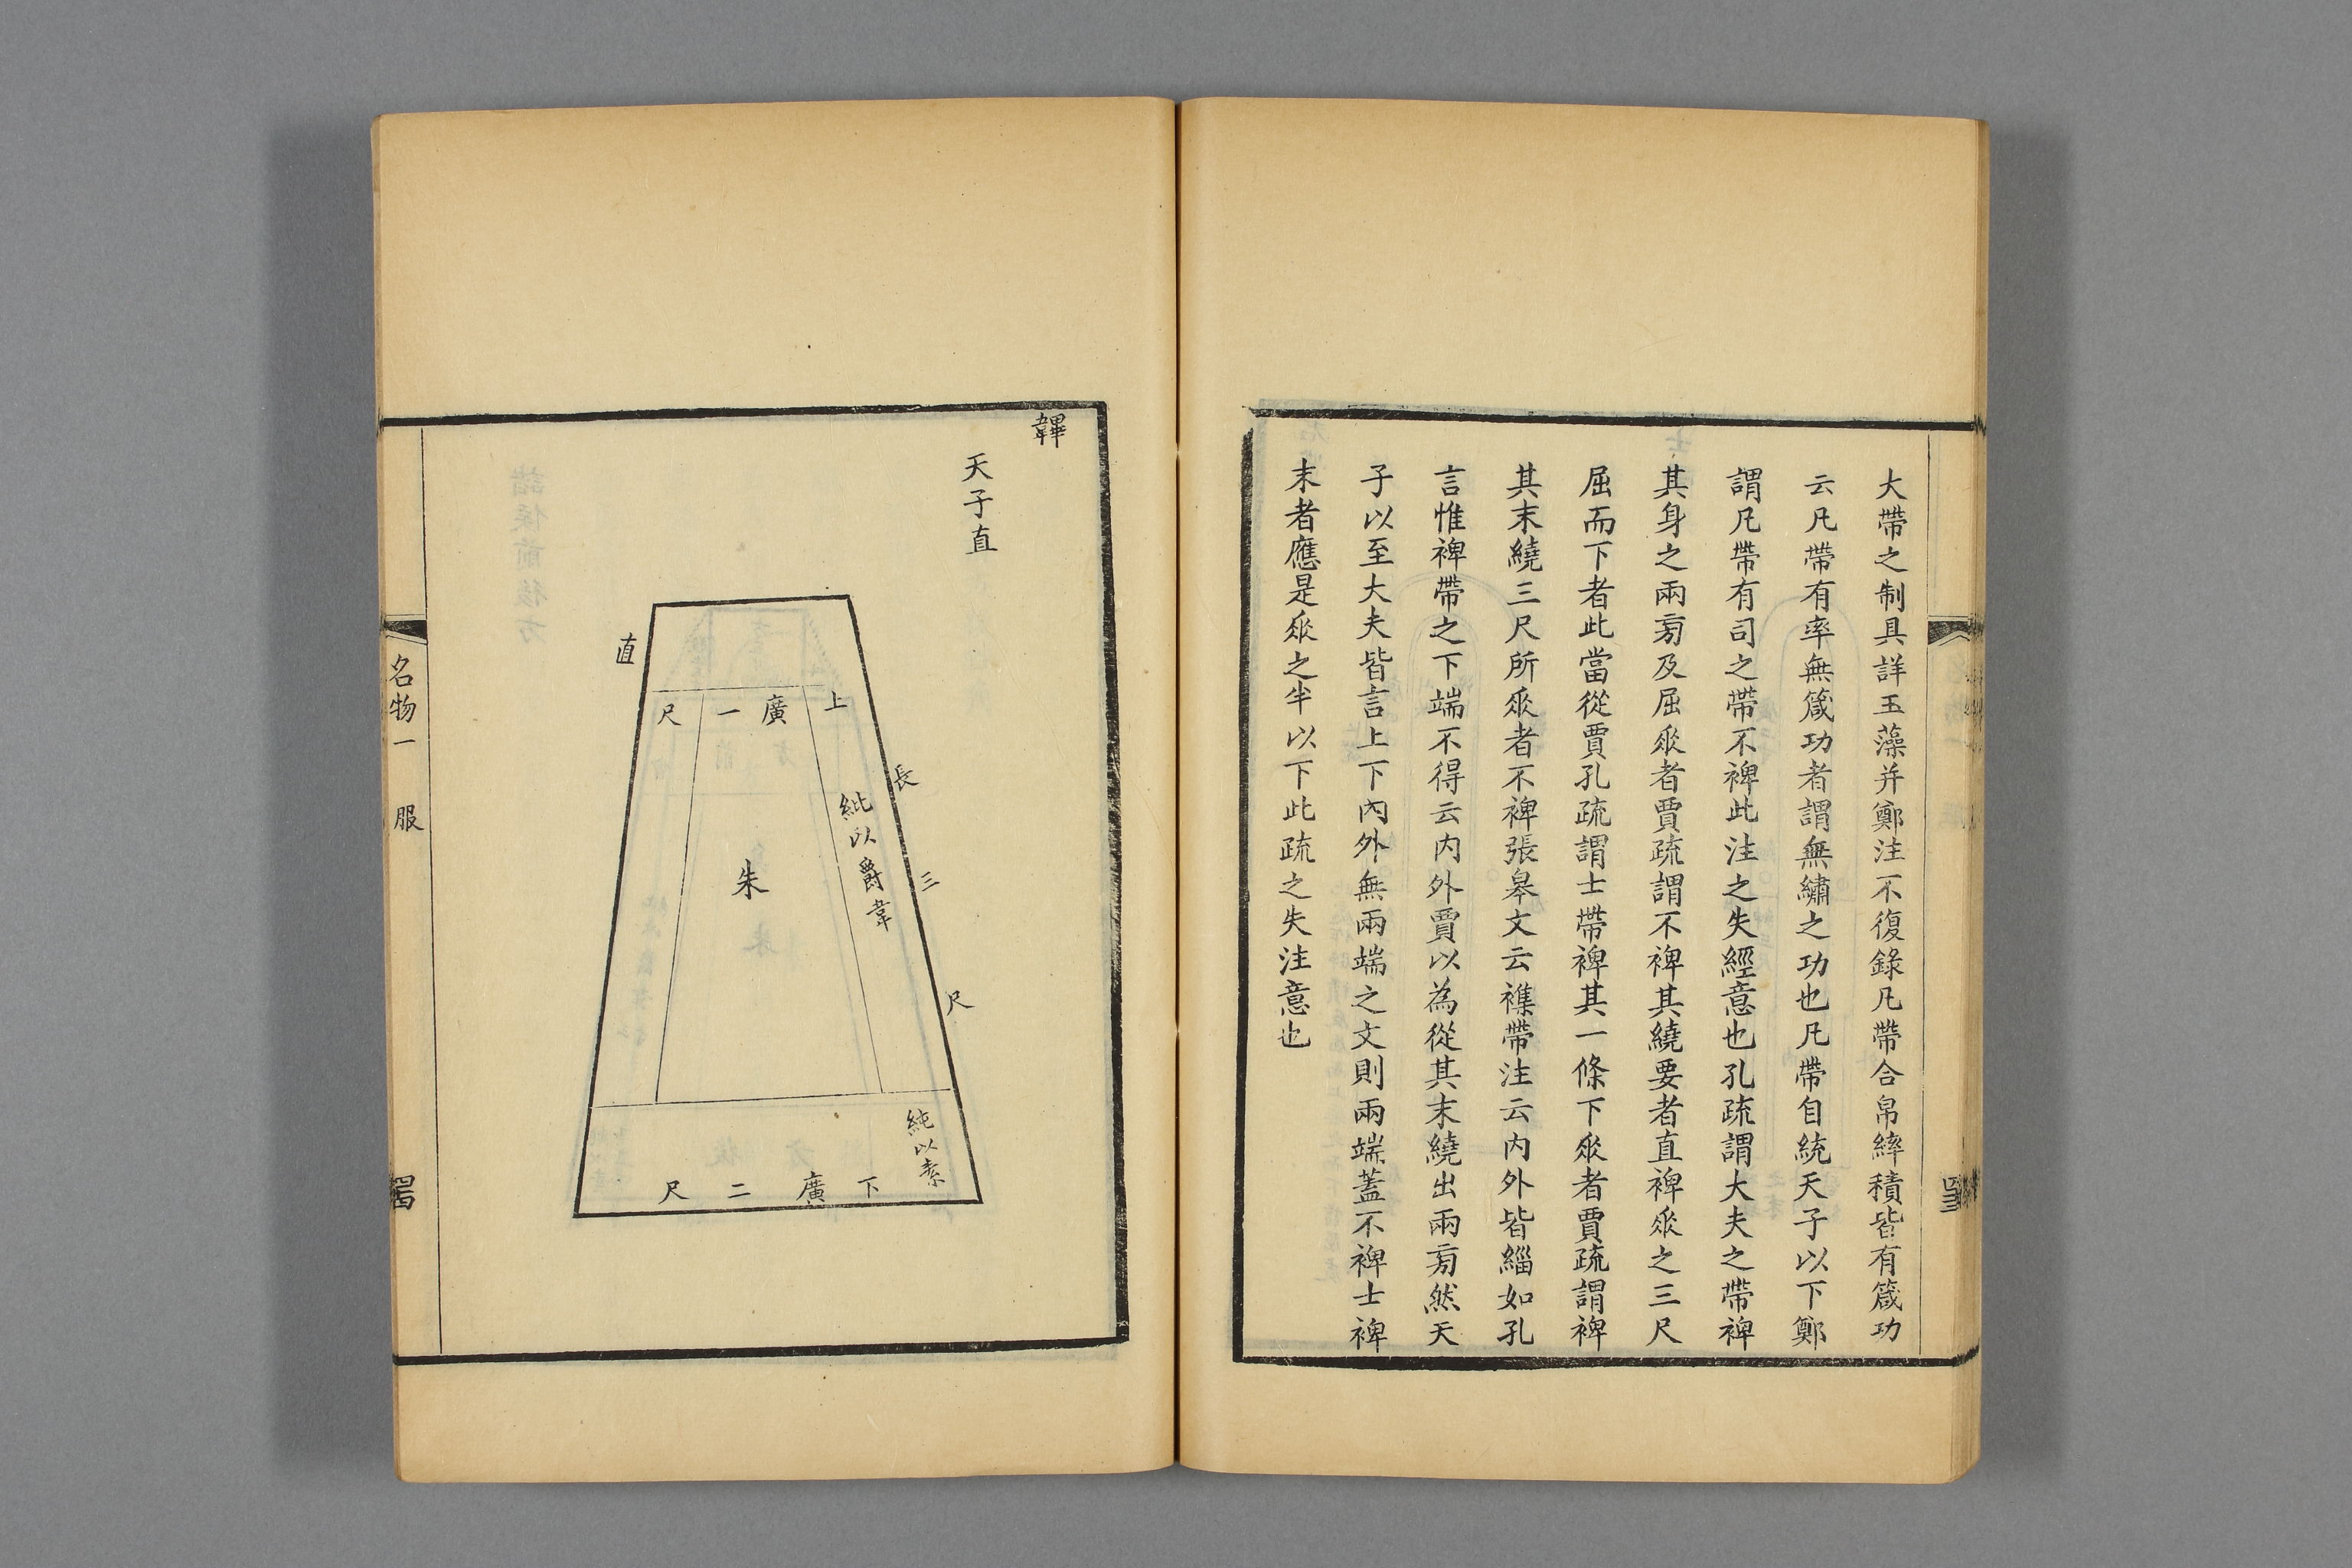 大帶之制具詳玉藻并鄭注不復錄凡帶合帛繂積皆有箴功
云凡帶有率無箴功者謂無繡之功也凡帶自統天子以下鄭
謂凡帶有司之帶不裨此注之失經意也孔疏謂大夫之帶裨
其身之兩㫄及屈𠂢者賈疏謂不裨其繞要者直裨𠂢之三尺
屈而下者此當從賈孔疏謂士帶裨其一條下𠂢者賈疏謂裨
其末繞三尺所𠂢者不裨張皋文云襍帶注云内外皆緇如孔
言惟裨帶之下端不得云内外賈以為從其末繞出兩㫄然天
子以至大夫皆言上下內外無兩端之文則兩端蓋不裨士裨
末者應是𠂢之半以下此疏之失注意也
韠
天子直
直
上廣一尺
長三尺
紕以爵韋
朱
純以素
下廣二尺
名物一 服